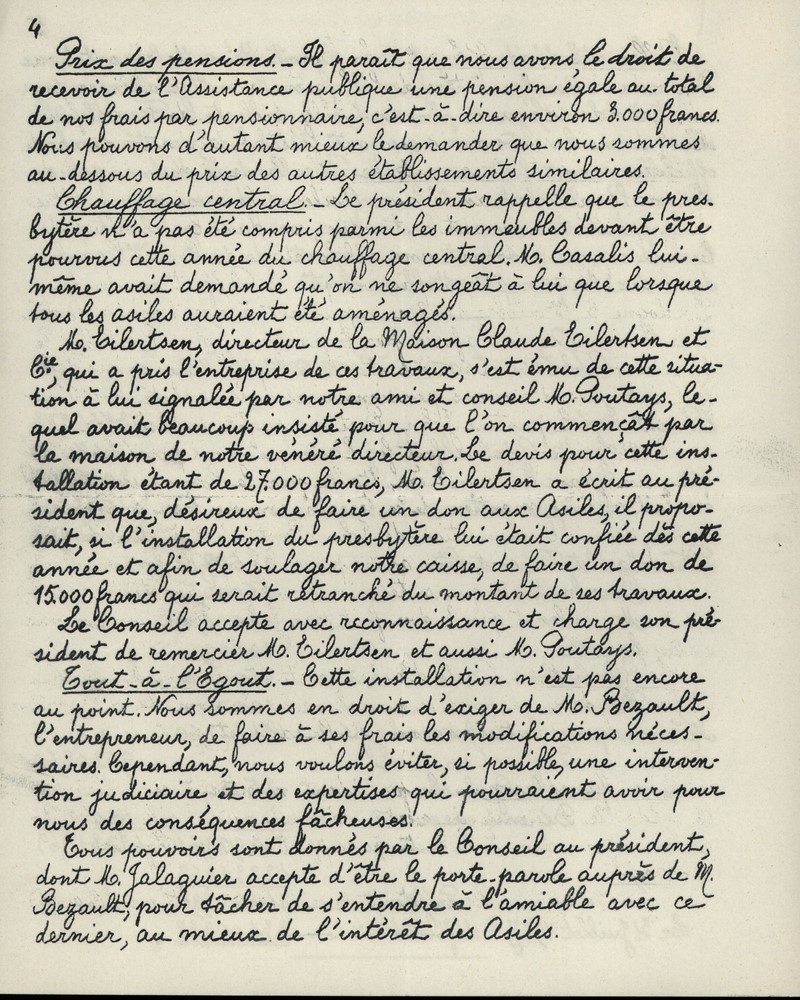 4
Prix des pensions. - Il paraît que nous avons le droit de
recevoir de l'Assistance publique une pension égale au total
de nos frais par pensionnaire, c'est-à-dire environ 3.000 francs.
Nous pouvons d'autant mieux le demander que nous sommes
au-dessous du prix des autres établissements similaires.
Chauffage central. - Le président rappelle que le pres-
bytère n'a pas été compris parmi les immeubles devant être
pourvus cette année du chauffage central. M. Casalis lui-
même avait demandé qu'on ne songeât à lui que lorsque
tous les asiles auraient été aménagés.
M. Eilertsen, directeur de la Maison Claude Eilertsen et
Cie, qui a pris l'entreprise de ces travaux, s'est ému de cette situa-
tion à lui signalée par notre ami et conseil M. Poutays, le-
quel avait beaucoup insisté pour que l'on commençât par
la maison de notre vénéré directeur. Le devis pour cette ins-
tallation étant de 27.000 francs, M. Eilertsen a écrit au pré-
sident que, désireux de faire un don aux Asiles, il propo-
sait, si l'installation du presbytère lui était confiée dès cette
année et afin de soulager notre caisse, de faire un don de
15.000 francs qui serait retranché du montant de ses travaux.
Le Conseil accepte avec reconnaissance et charge son pré-
sident de remercier M. Eilertsen et aussi M. Poutays.
Tout-à-l'Egout. - Cette installation n'est pas encore
au point. Nous sommes en droit d'exiger de M. Bezault,
l'entrepreneur, de faire à ses frais les modifications néces-
saires. Cependant, nous voulons éviter, si possible, une interven-
tion judiciaire et des expertises qui pourraient avoir pour
nous des conséquences fâcheuses.
Tous pouvoirs sont donnés par le Conseil au président,
dont M. Jalaguier accepte d'être le porte-parole auprès de M.
Bezault, pour tâcher de s'entendre à l'amiable avec ce
dernier, au mieux de l'intérêt des Asiles.